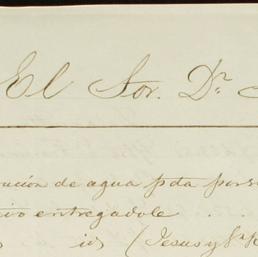 El Sor. Dr.
ución de agua pda por s
entregadole . .
id (Jesus y